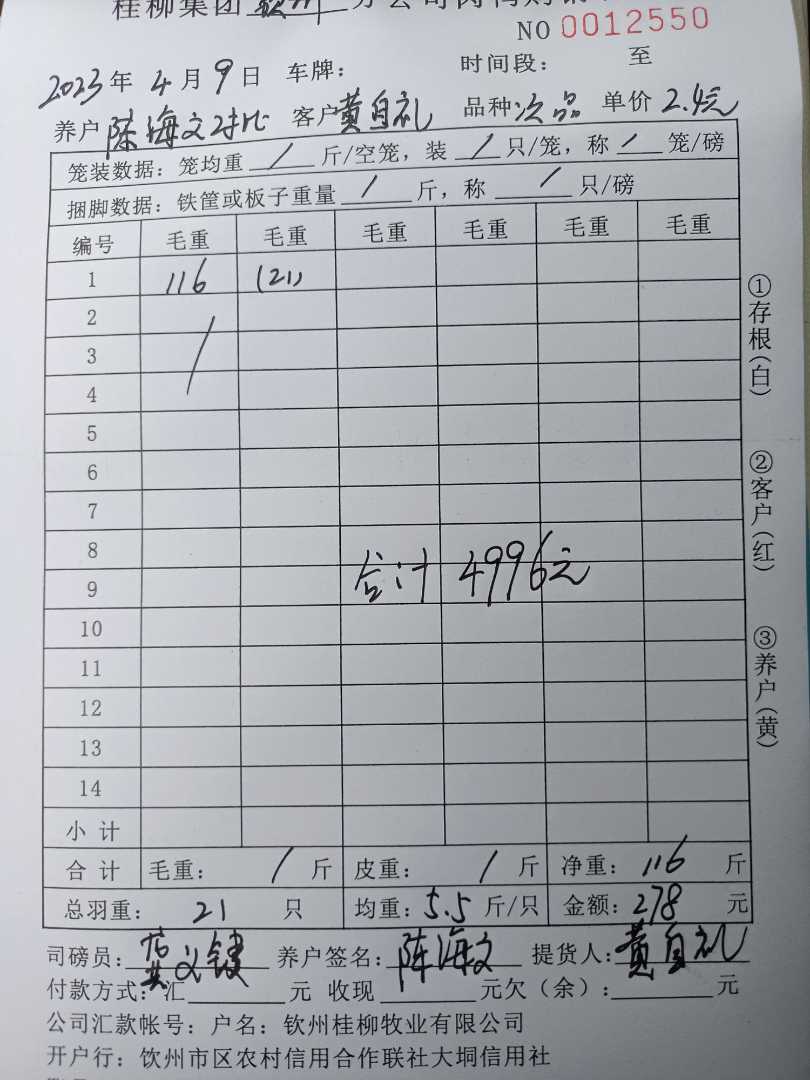 桂柳集团 钦州 分公司肉鸭购销
NO 0012550
2023年 4月9日 车牌： 时间段： 至
养户 陈海文对比 客户 黄自礼 品种 次品 单价 2.4元
笼装数据：笼均重 / 斤/空笼，装 / 只/笼，称 / 笼/磅
捆脚数据：铁筐或板子重量 / 斤，称 / 只/磅
编号 毛重 毛重 毛重 毛重 毛重 毛重
1 116 (21)
2
3 /
4
5
6
7
8
合计 4996元
9
10
11
12
13
14
小计
合计 毛重： / 斤 皮重： / 斤 净重：116 斤
总羽重： 21 只 均重：5.5 斤/只 金额：278 元
司磅员： 养户签名：陈海文 提货人：黄自礼
付款方式：汇 元 收现 元欠（余）： 元
公司汇款帐号：户名：钦州桂柳牧业有限公司
开户行：钦州市区农村信用合作联社大垌信用社
①存根（白）
②客户（红）
③养户（黄）